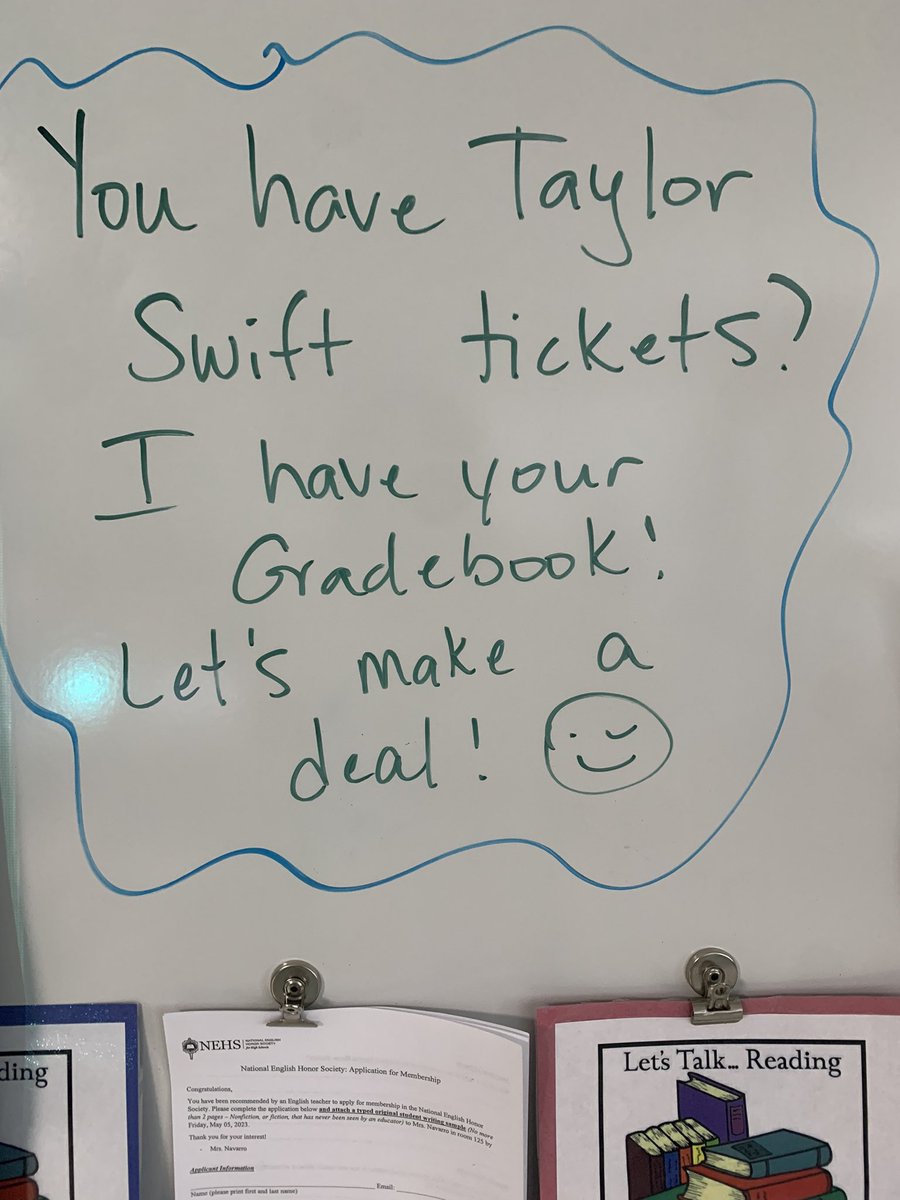 You have Taylor
Swift tickets?
I have your
Gradebook!
Let's make a
deal!
ding
NEHS
NATIONAL ENGLISH
HONOR SOCIETY
for High Schools
National English Honor Society: Application for Membership
Congratulations,
You have been recommended by an English teacher to apply for membership in the National English Honor
Society. Please complete the application below and attach a typed original student writing sample (No more
than 2 pages – Nonfiction, or fiction, that has never been seen by an educator) to Mrs. Navarro in room 125 by
Friday, May 05, 2023.
Thank you for your interest!
- Mrs. Navarro
Applicant Information
Name (please print first and last name) Email:
Let's Talk... Reading